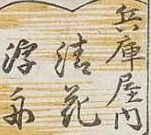 兵庫屋内
清花
浮舟